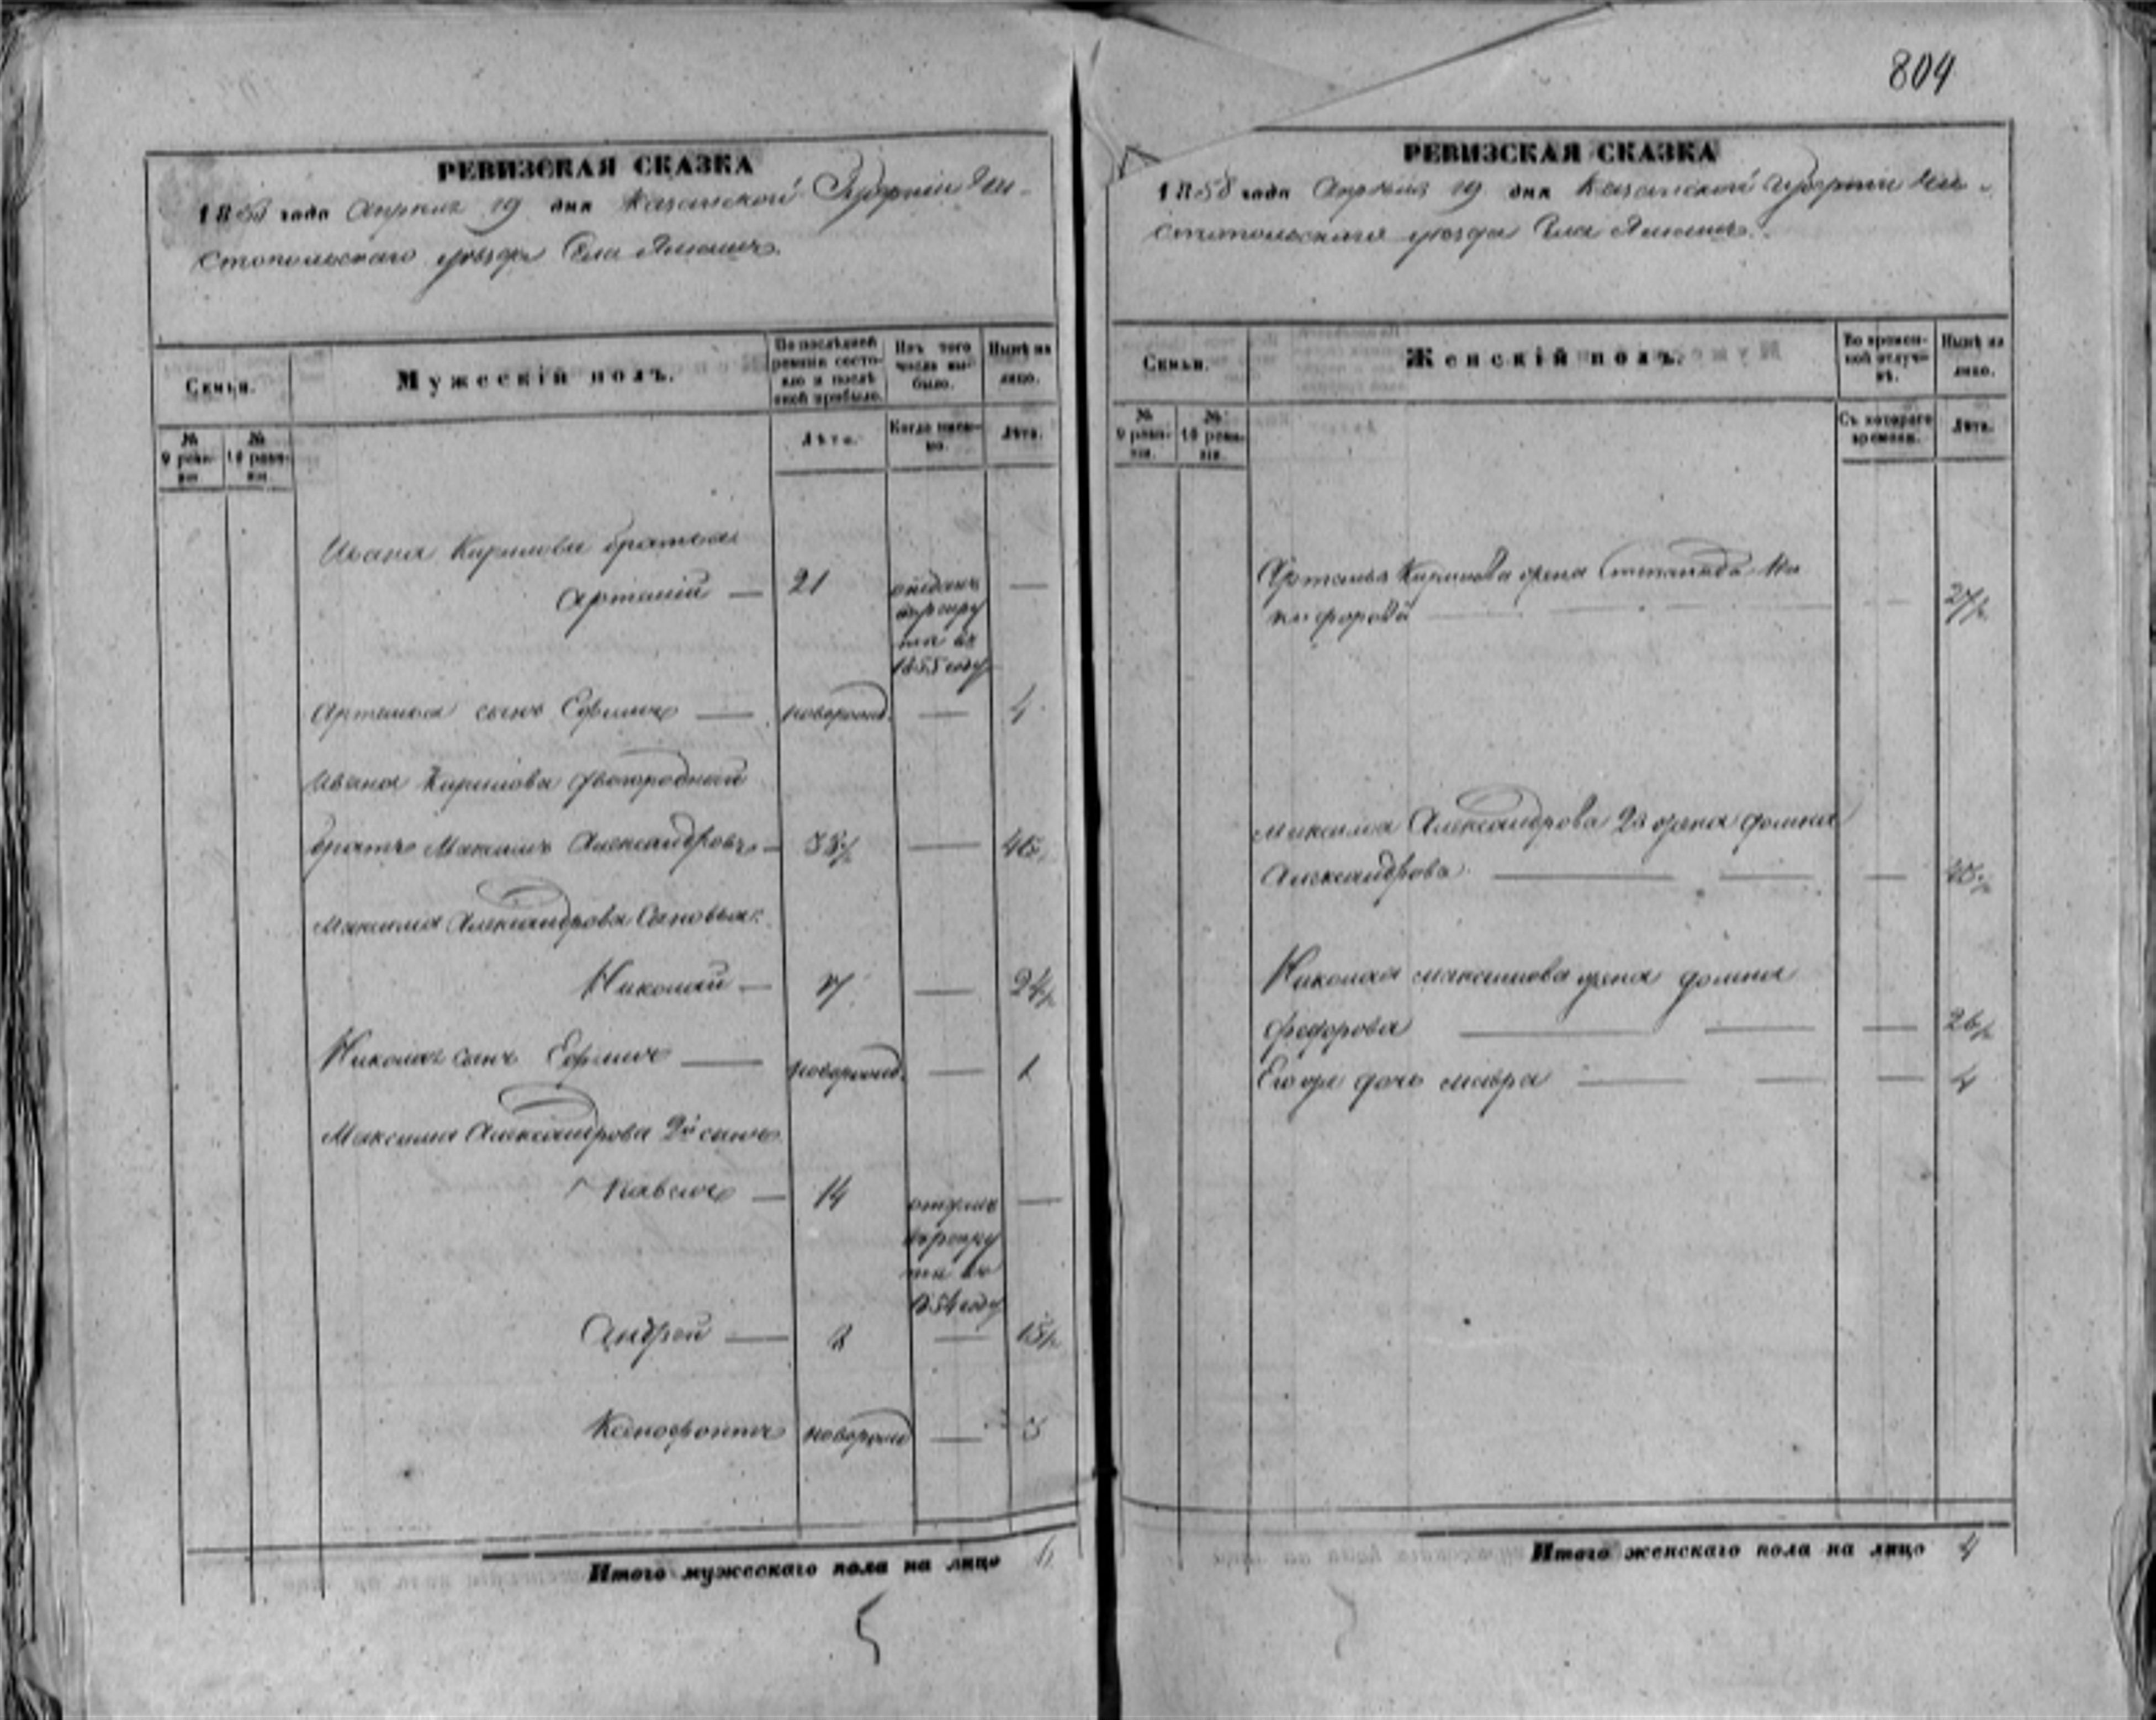 804
РЕВИЗСКАЯ СКАЗКА
1858 года Апреля 19 дня Казанской Губернии Чи-
стопольскаго уезда Села
Семьи.
Мужескій полъ.
По послѣдней ревизіи состояло и послѣ оной прибыло.
Изъ того числа выбыло.
Нынѣ на лицо.
№ 9 ревизіи
№ 10 ревизіи.
Лѣта.
Когда именно.
Лѣта.
Ивана Кирилова братья
Артемій — 21 отданъ
в рекру
та въ
1855 году —
Артемья сынъ Ефимъ — новорожд. — 4
Ивана Кирилова двоюродный
братъ Максимъ Александровъ —
Максима Александрова Сыновья:
Николай — 24½
Николая сынъ Ефимъ — новорожд. — 1
Максима Александрова 2й сынъ
Павелъ — 14
в рекру
та въ
1854 году —
Андрей — 15½
Ксенофонтъ новорожд — 3
Итого мужескаго пола на лицо
5
РЕВИЗСКАЯ СКАЗКА
1858 года Апреля 19 дня Казанской Губернии Чи-
стопольскаго уезда Села
Семьи.
Женскій полъ.
Во временной отлучкѣ.
Нынѣ на лицо.
№ 9 ревизіи.
№ 10 ревизіи.
Съ котораго времени.
Лѣта.
Артемья Кирилова жена Степанида Ни
кифорова — — 27½
Максима Александрова 2я жена Домна
Александрова — —
Николая Максимова жена Домна
Федорова — — 26½
Его же дочь Мавра — — 4
Итого женскаго пола на лицо 4